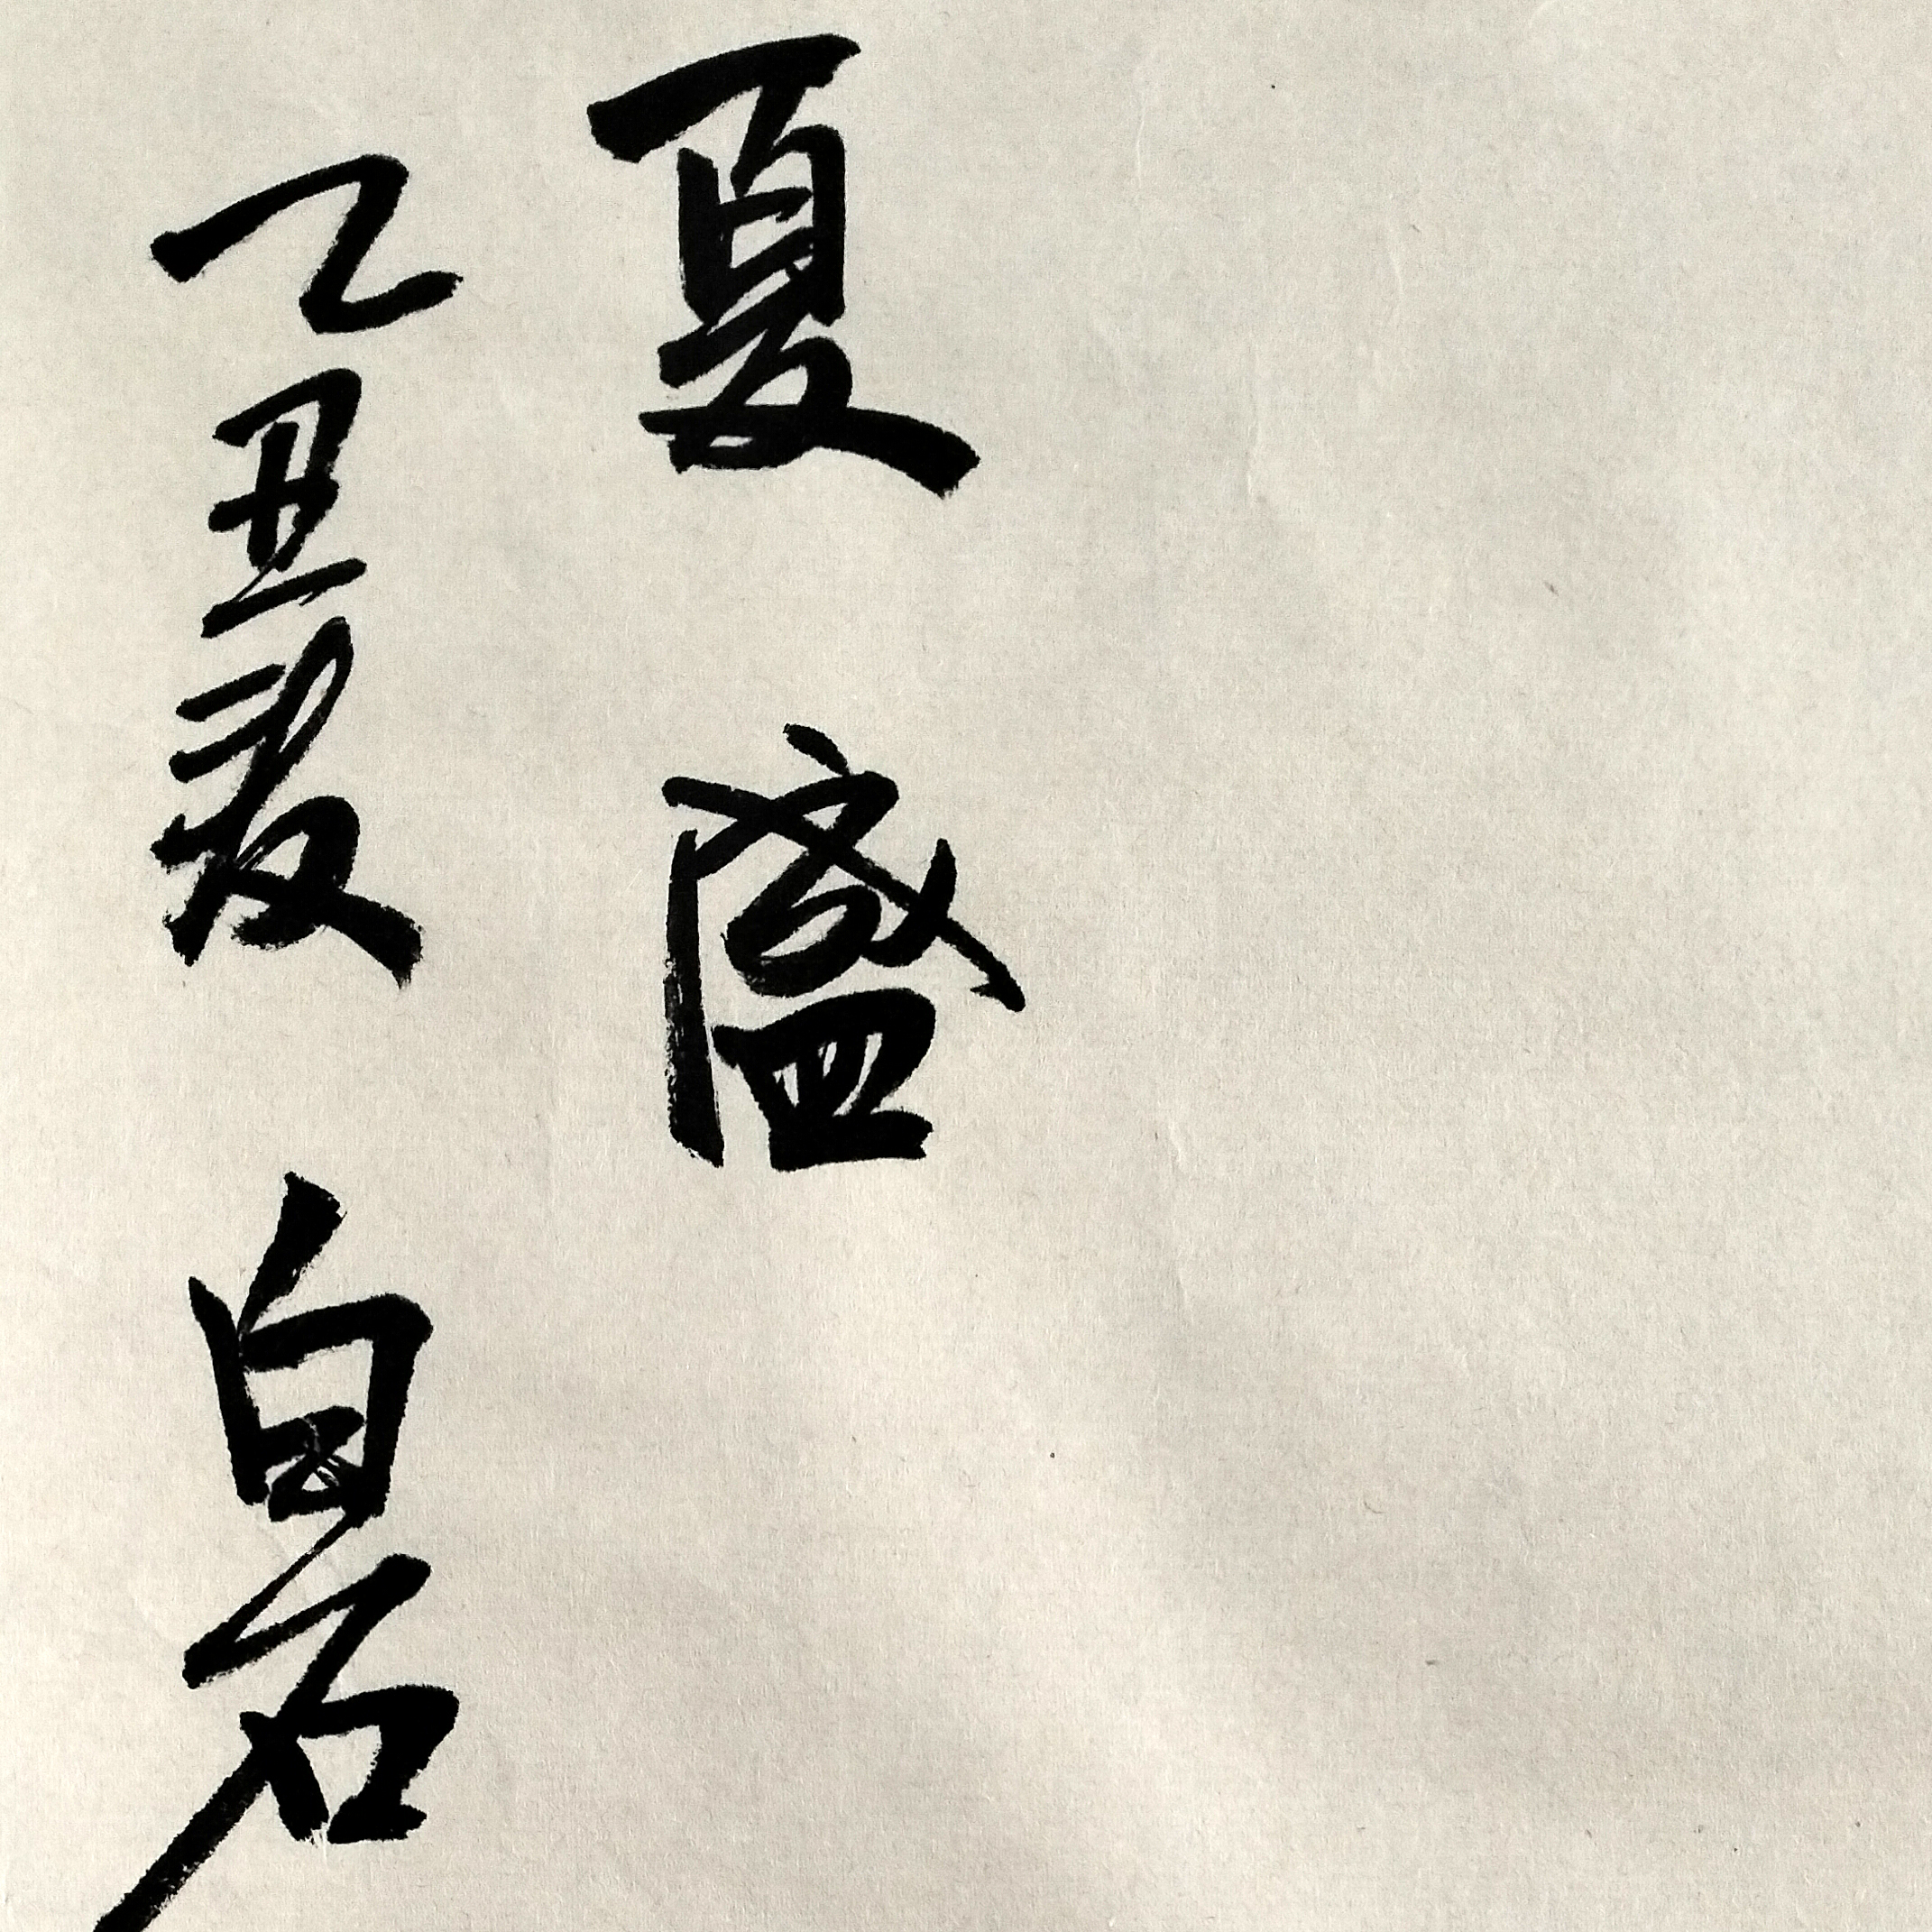 夏盛
乙丑夏白石